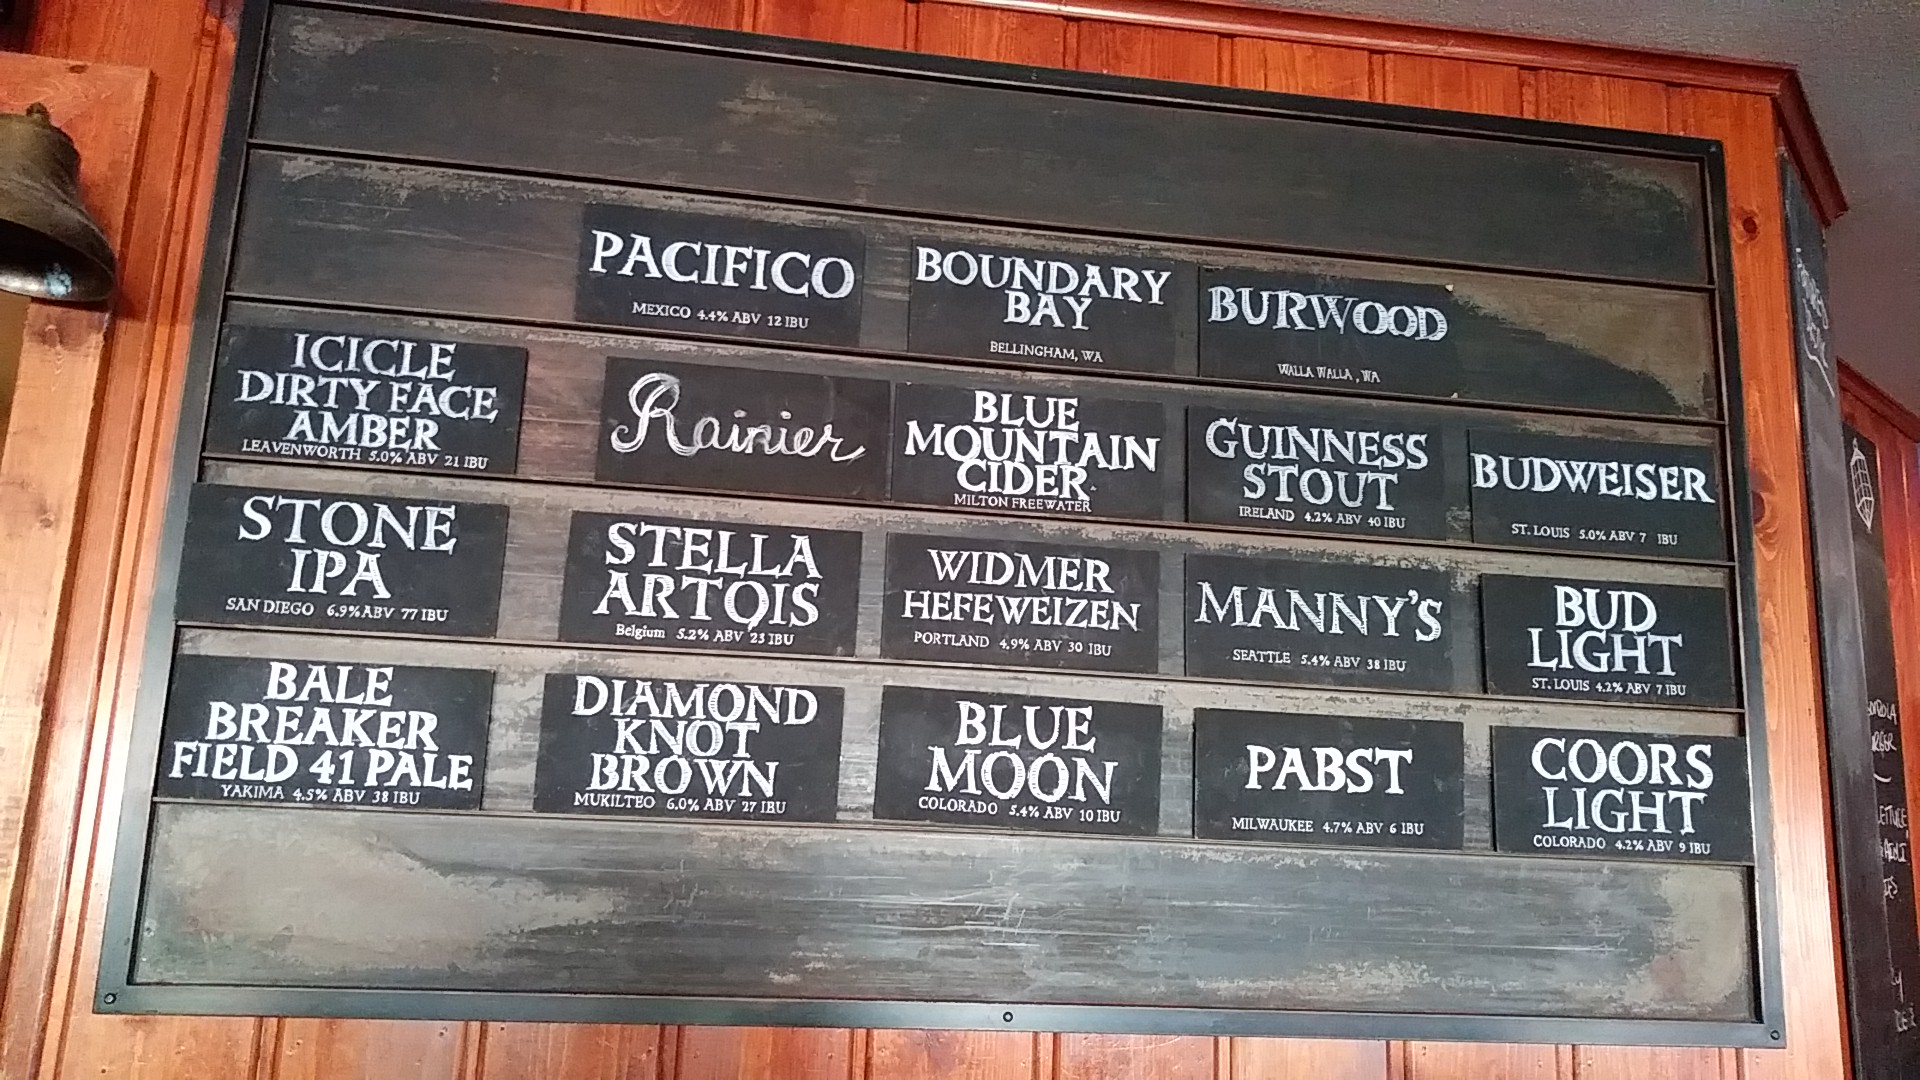 PACIFICO
MEXICO 4.4% ABV 12 IBU
BOUNDARY
BAY
BELLINGHAM, WA
BURWOOD
WALLA WALLA, WA
ICICLE
DIRTY FACE
AMBER
LEAVENWORTH 5.0% ABV 21 IBU
Rainier
BLUE
MOUNTAIN
CIDER
MILTON FREEWATER
GUINNESS
STOUT
IRELAND 4.2% ABV 40 IBU
BUDWEISER
ST. LOUIS 5.0% ABV 7 IBU
STONE
IPA
SAN DIEGO 6.9% ABV 77 IBU
STELLA
ARTOIS
Belgium 5.2% ABV 23 IBU
WIDMER
HEFEWEIZEN
PORTLAND 4.9% ABV 30 IBU
MANNY'S
SEATTLE 5.4% ABV 38 IBU
BUD
LIGHT
ST. LOUIS 4.2% ABV 7 IBU
BALE
BREAKER
FIELD 41 PALE
YAKIMA 4.5% ABV 38 IBU
DIAMOND
KNOT
BROWN
MUKILTEO 6.0% ABV 27 IBU
BLUE
MOON
COLORADO 5.4% ABV 10 IBU
PABST
MILWAUKEE 4.7% ABV 6 IBU
COORS
LIGHT
COLORADO 4.2% ABV 9 IBU